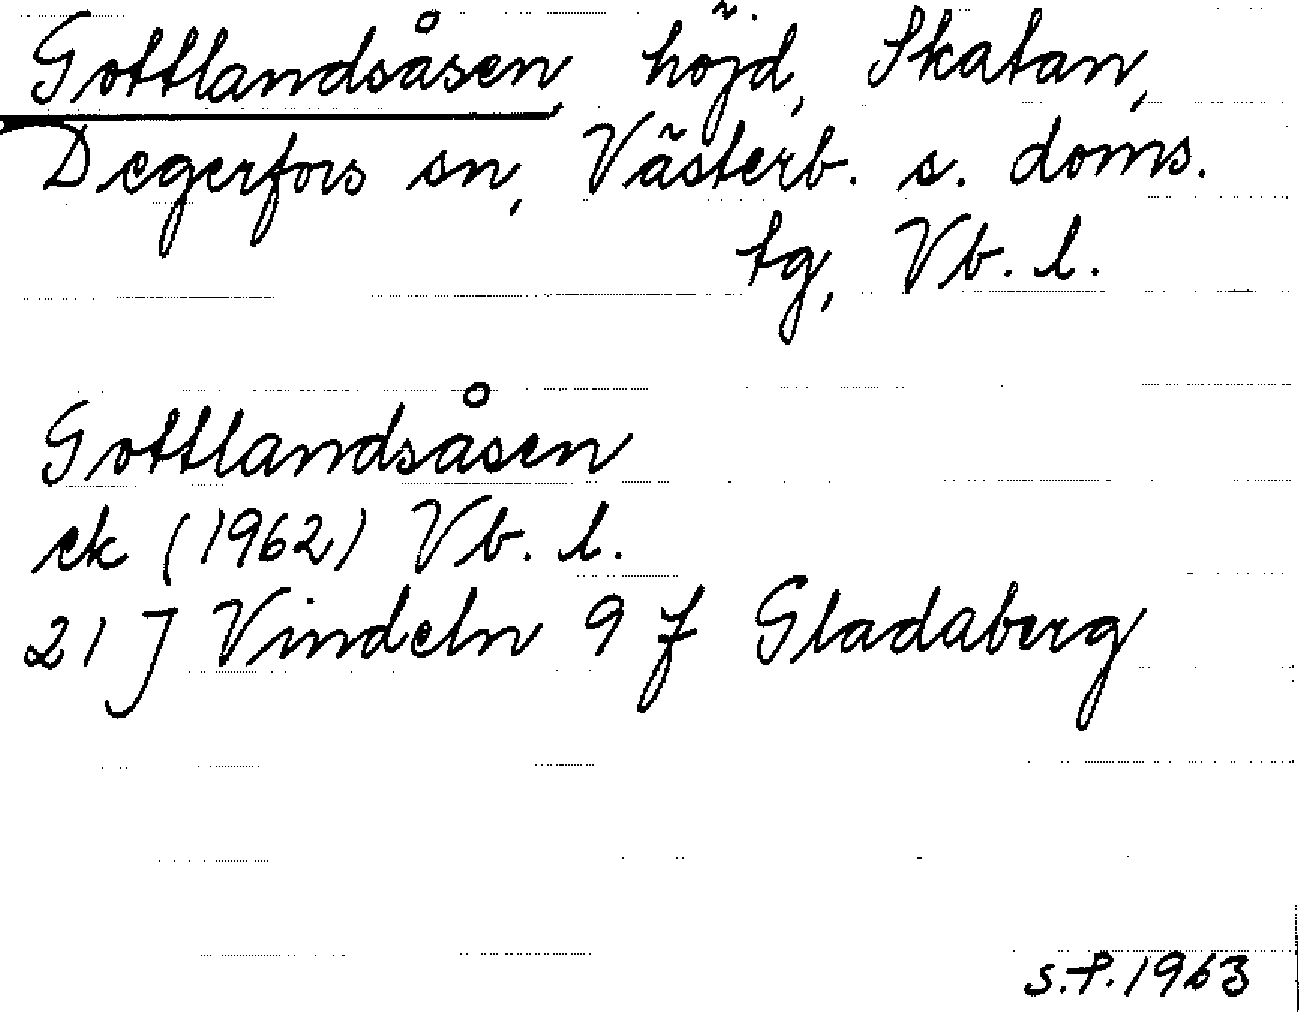 Gottlandsåsen, höjd, Skatan,
Degerfors sn, Västerb. s. doms.
tg, Vb. l.
Gottlandsåsen
ek (1962) Vb. l.
21 J Vindeln 9 f Gladaberg
S.P. 1963